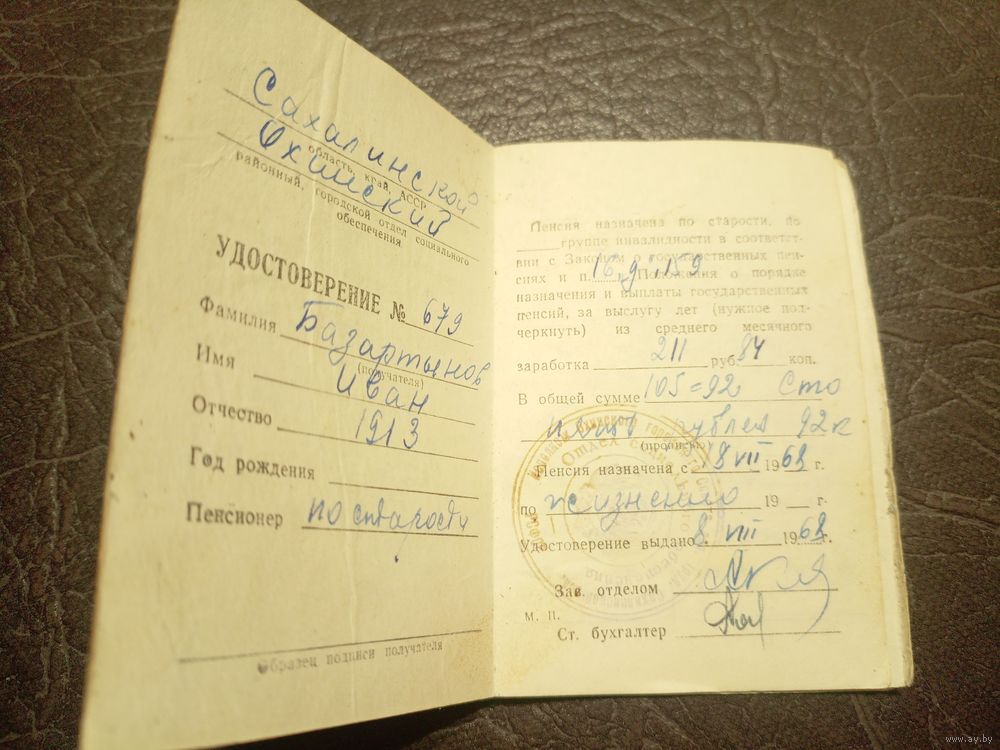 Сахалинской
область, край, АССР
Охинский
районный, городской отдел социального
обеспечения
УДОСТОВЕРЕНИЕ № 679
Фамилия Базартынов
(получателя)
Имя Иван
Отчество 1913
Год рождения
Пенсионер по старости
Образец подписи получателя
Пенсия назначена по старости, по
группе инвалидности в соответст-
вии с Законом о государственных пен-
сиях и п. Положения о порядке
назначения и выплаты государственных
пенсий, за выслугу лет (нужное под-
черкнуть) из среднего месячного
заработка 211 руб. 84 коп.
В общей сумме 105=92 Сто
пять рублей 92к
(прописью)
Пенсия назначена с 8 VII 1968 г.
по жизненно 19 г.
Удостоверение выдано 8 VIII 1968 г.
Зав. отделом
М. П.
Ст. бухгалтер
www.ay.by